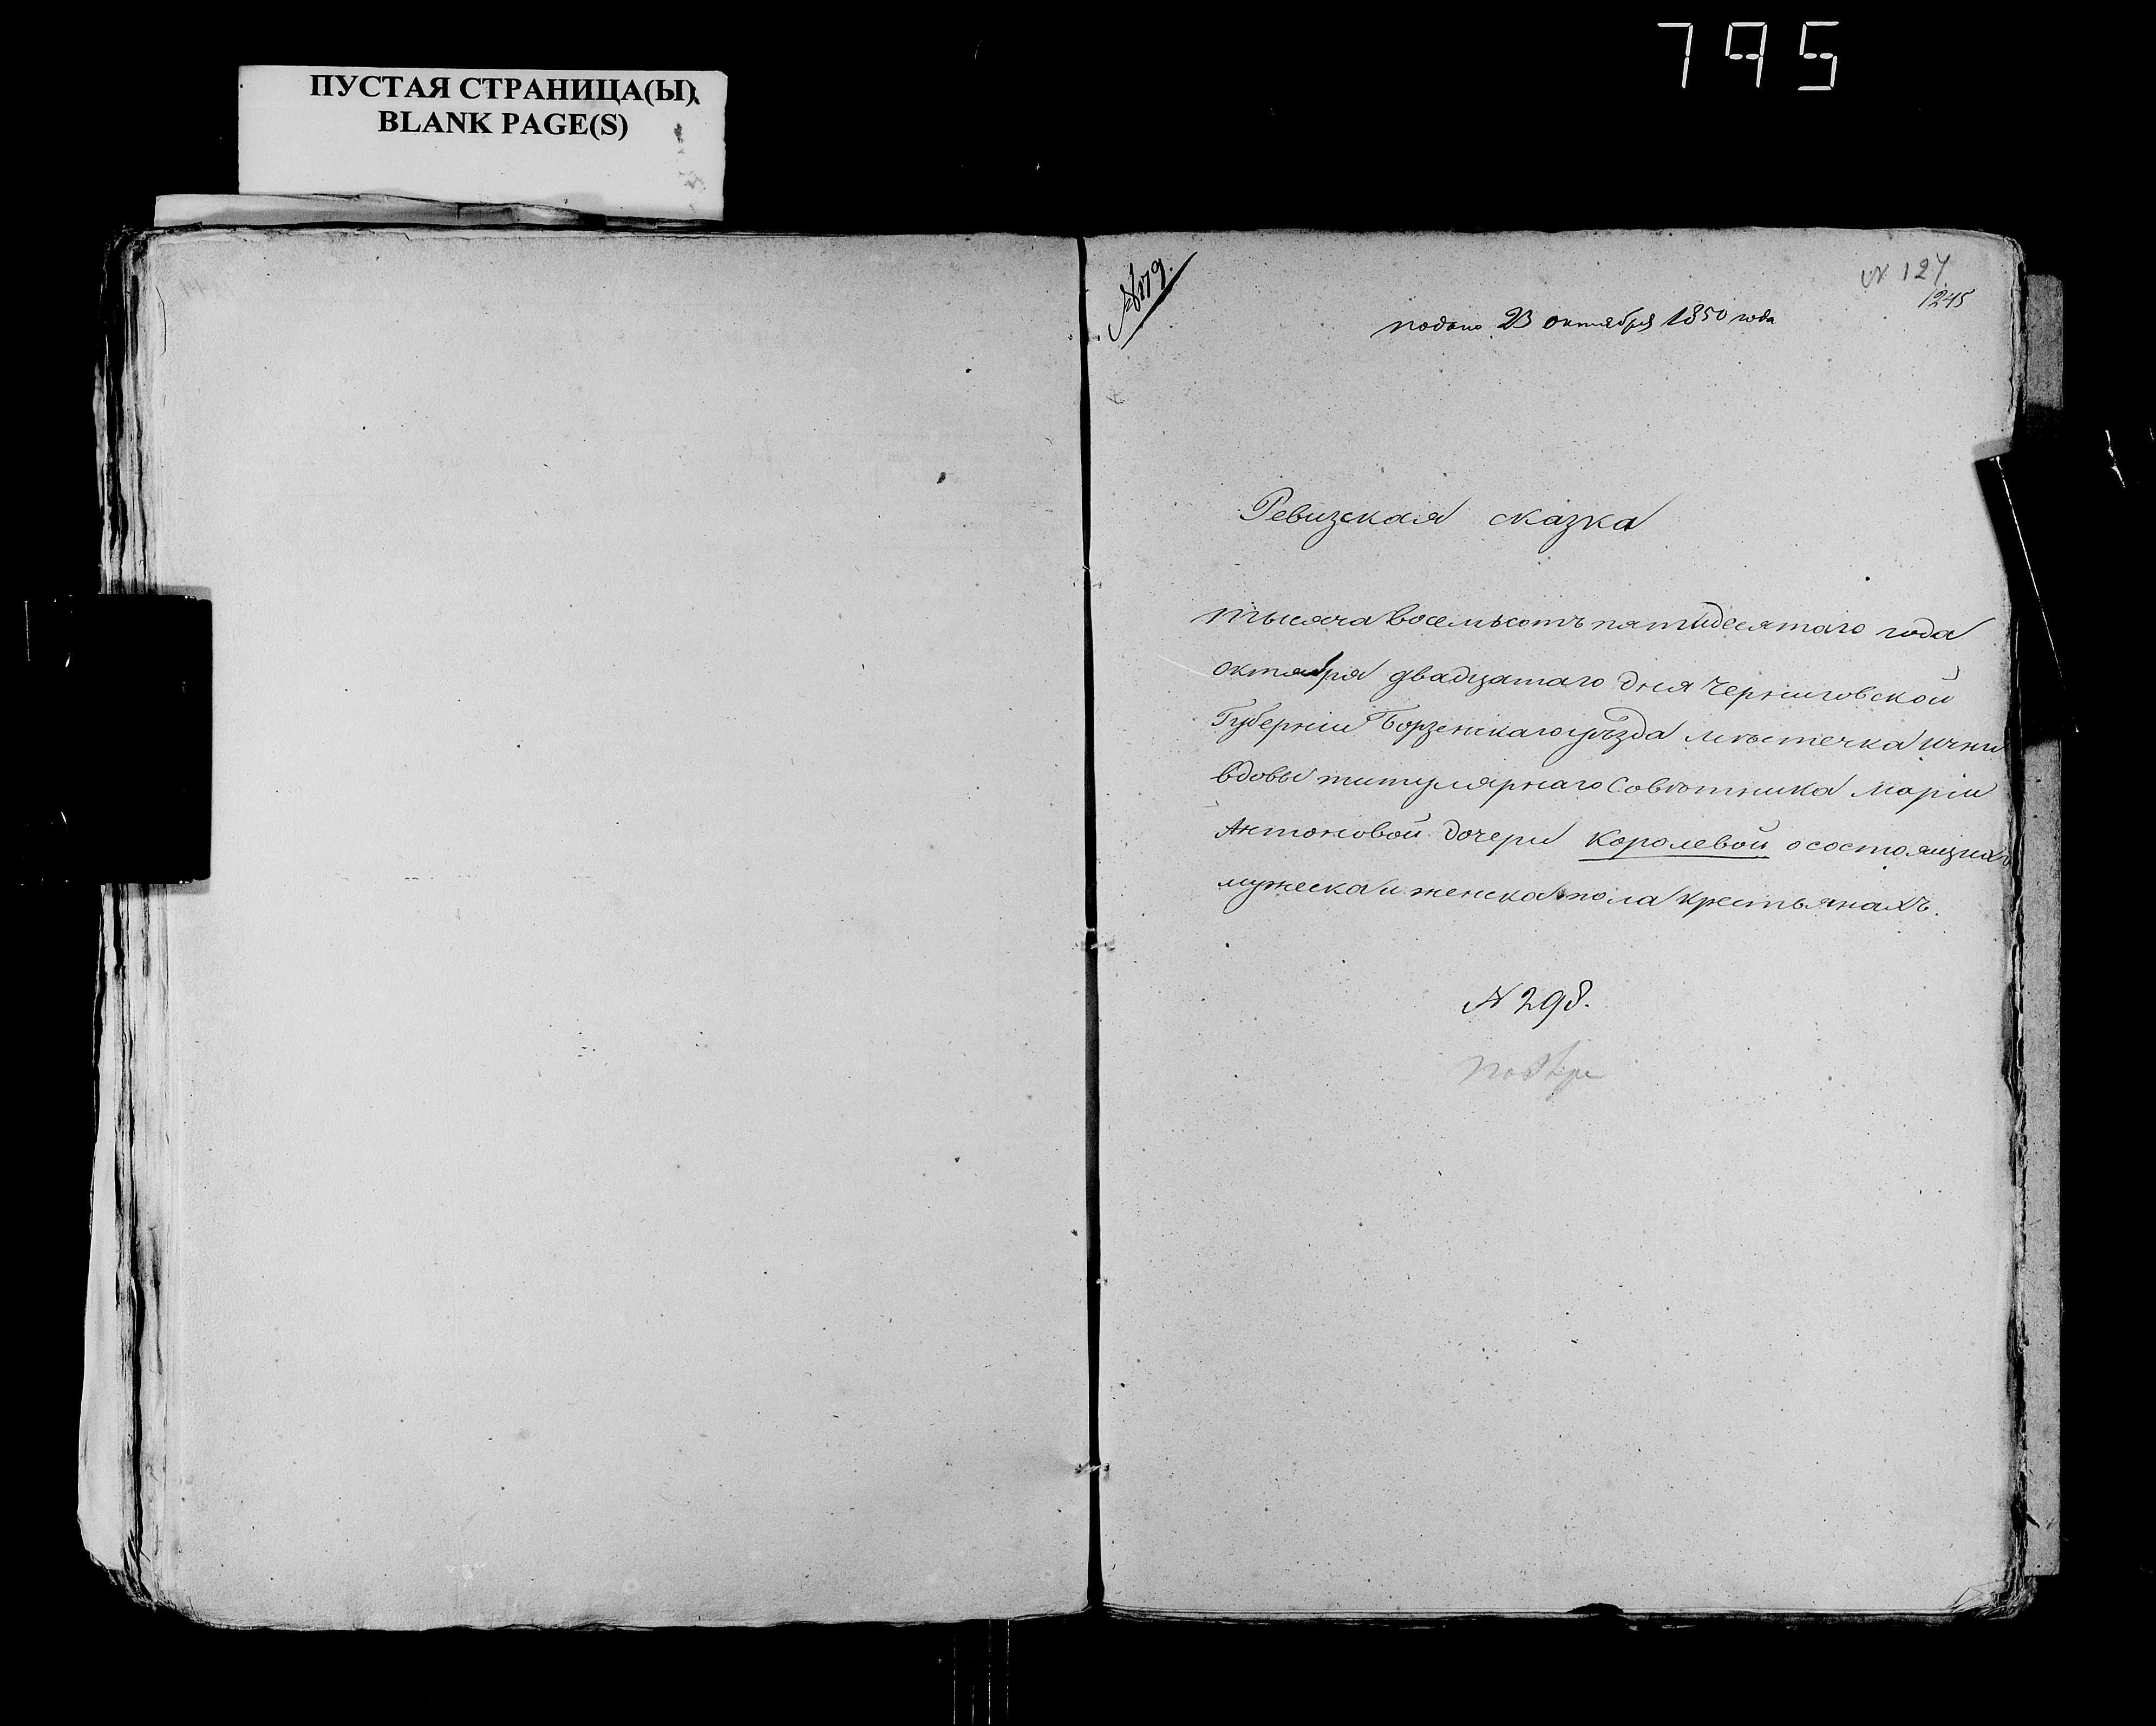 795
ПУСТАЯ СТРАНИЦА(Ы)
BLANK PAGE(S)
№ 179.
№ 127
1245
подано 23 октября 1850 года
Ревизская сказка
тысяча восемьсотъ пятидесятаго года
октября двадцатаго дня Черниговской
Губерніи Борзенскаго уѣзда мѣстечка Ични
вдовы титулярнаго Совѣтника Маріи
Антоновой дочери Королевой о состоящихъ
мужеска и женска пола крестьянахъ.
№ 298.